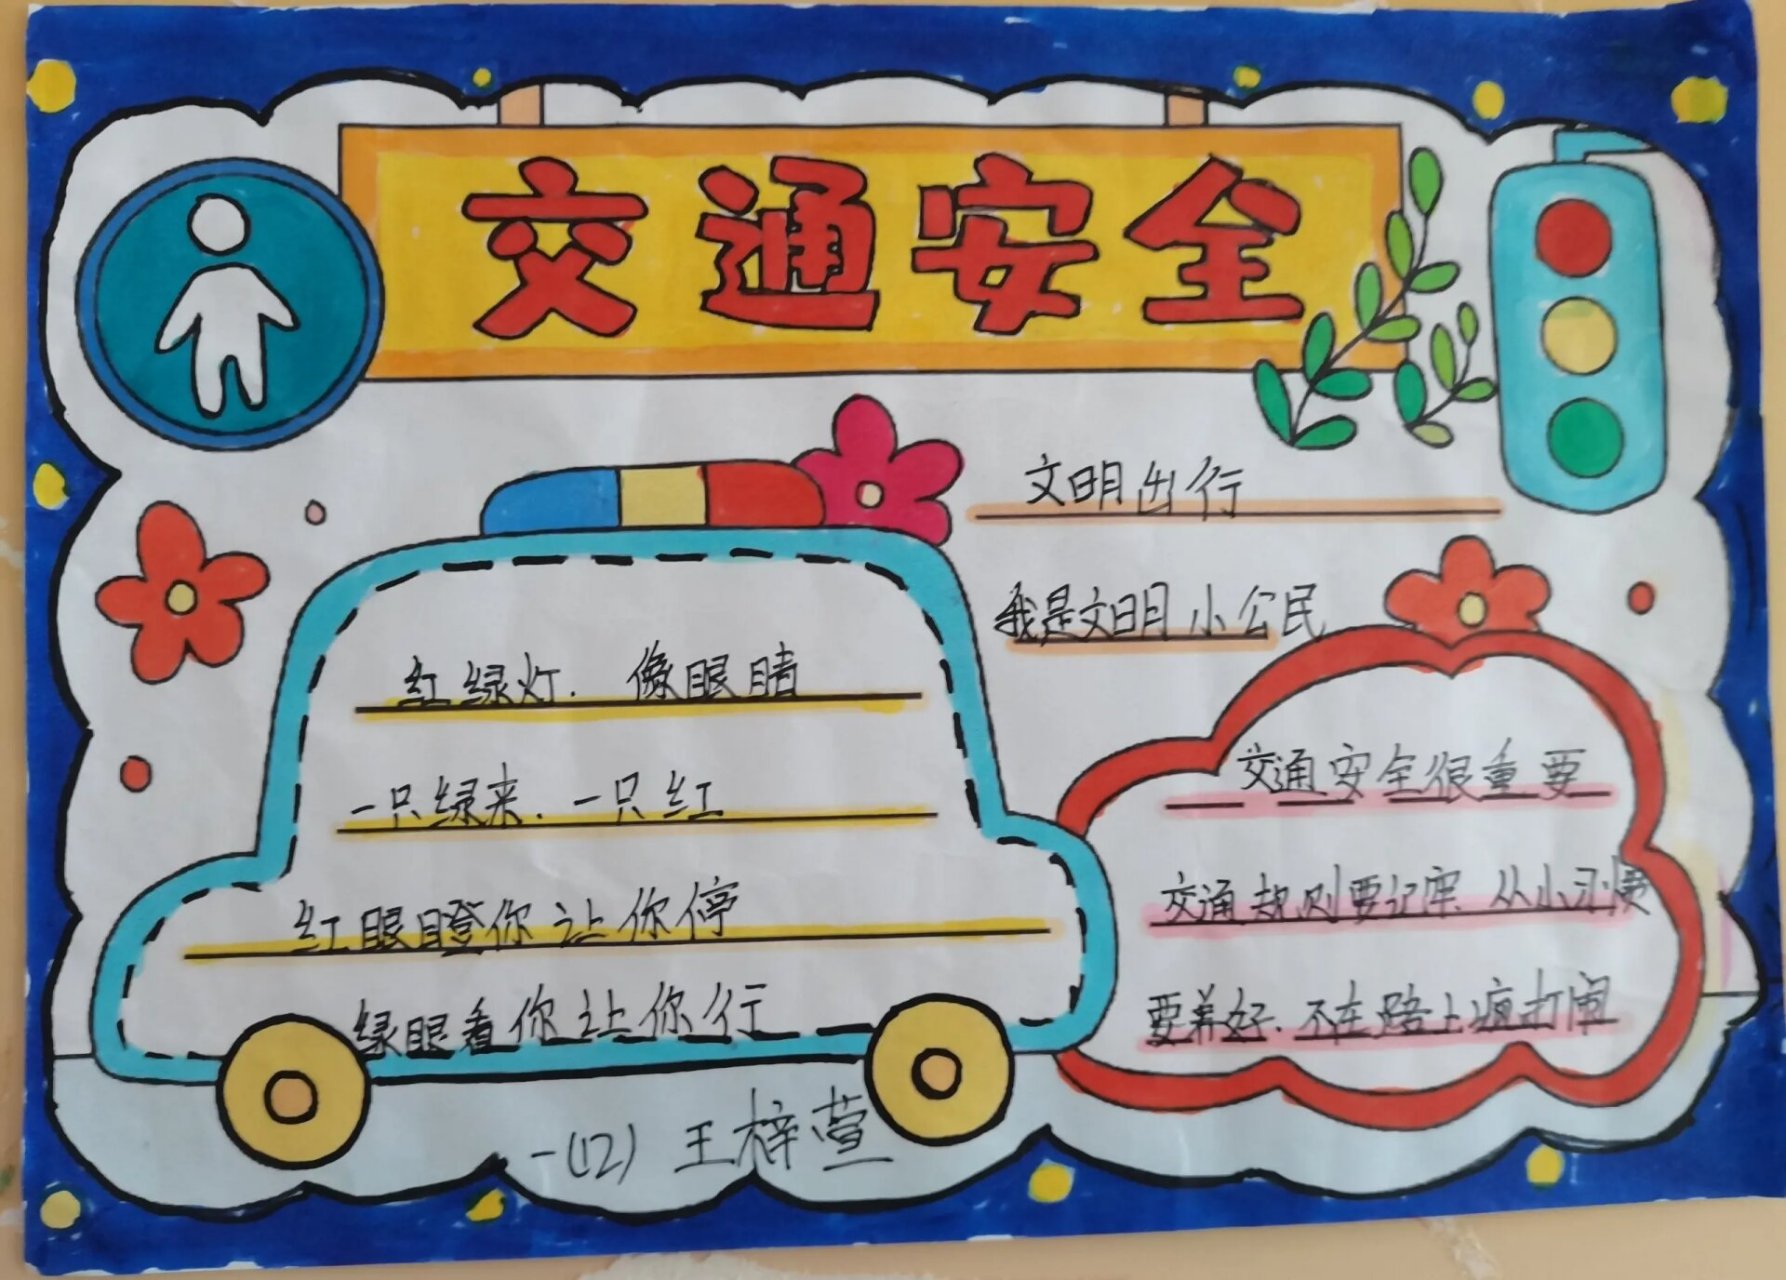 交通安全
文明出行
我是文明小公民
红绿灯.像眼睛
一只绿来.一只红
红眼瞪你让你停
绿眼看你让你行
交通安全很重要
交通规则要记牢 从小习惯
要养好.不在路上疯打闹
一(12) 王梓萱